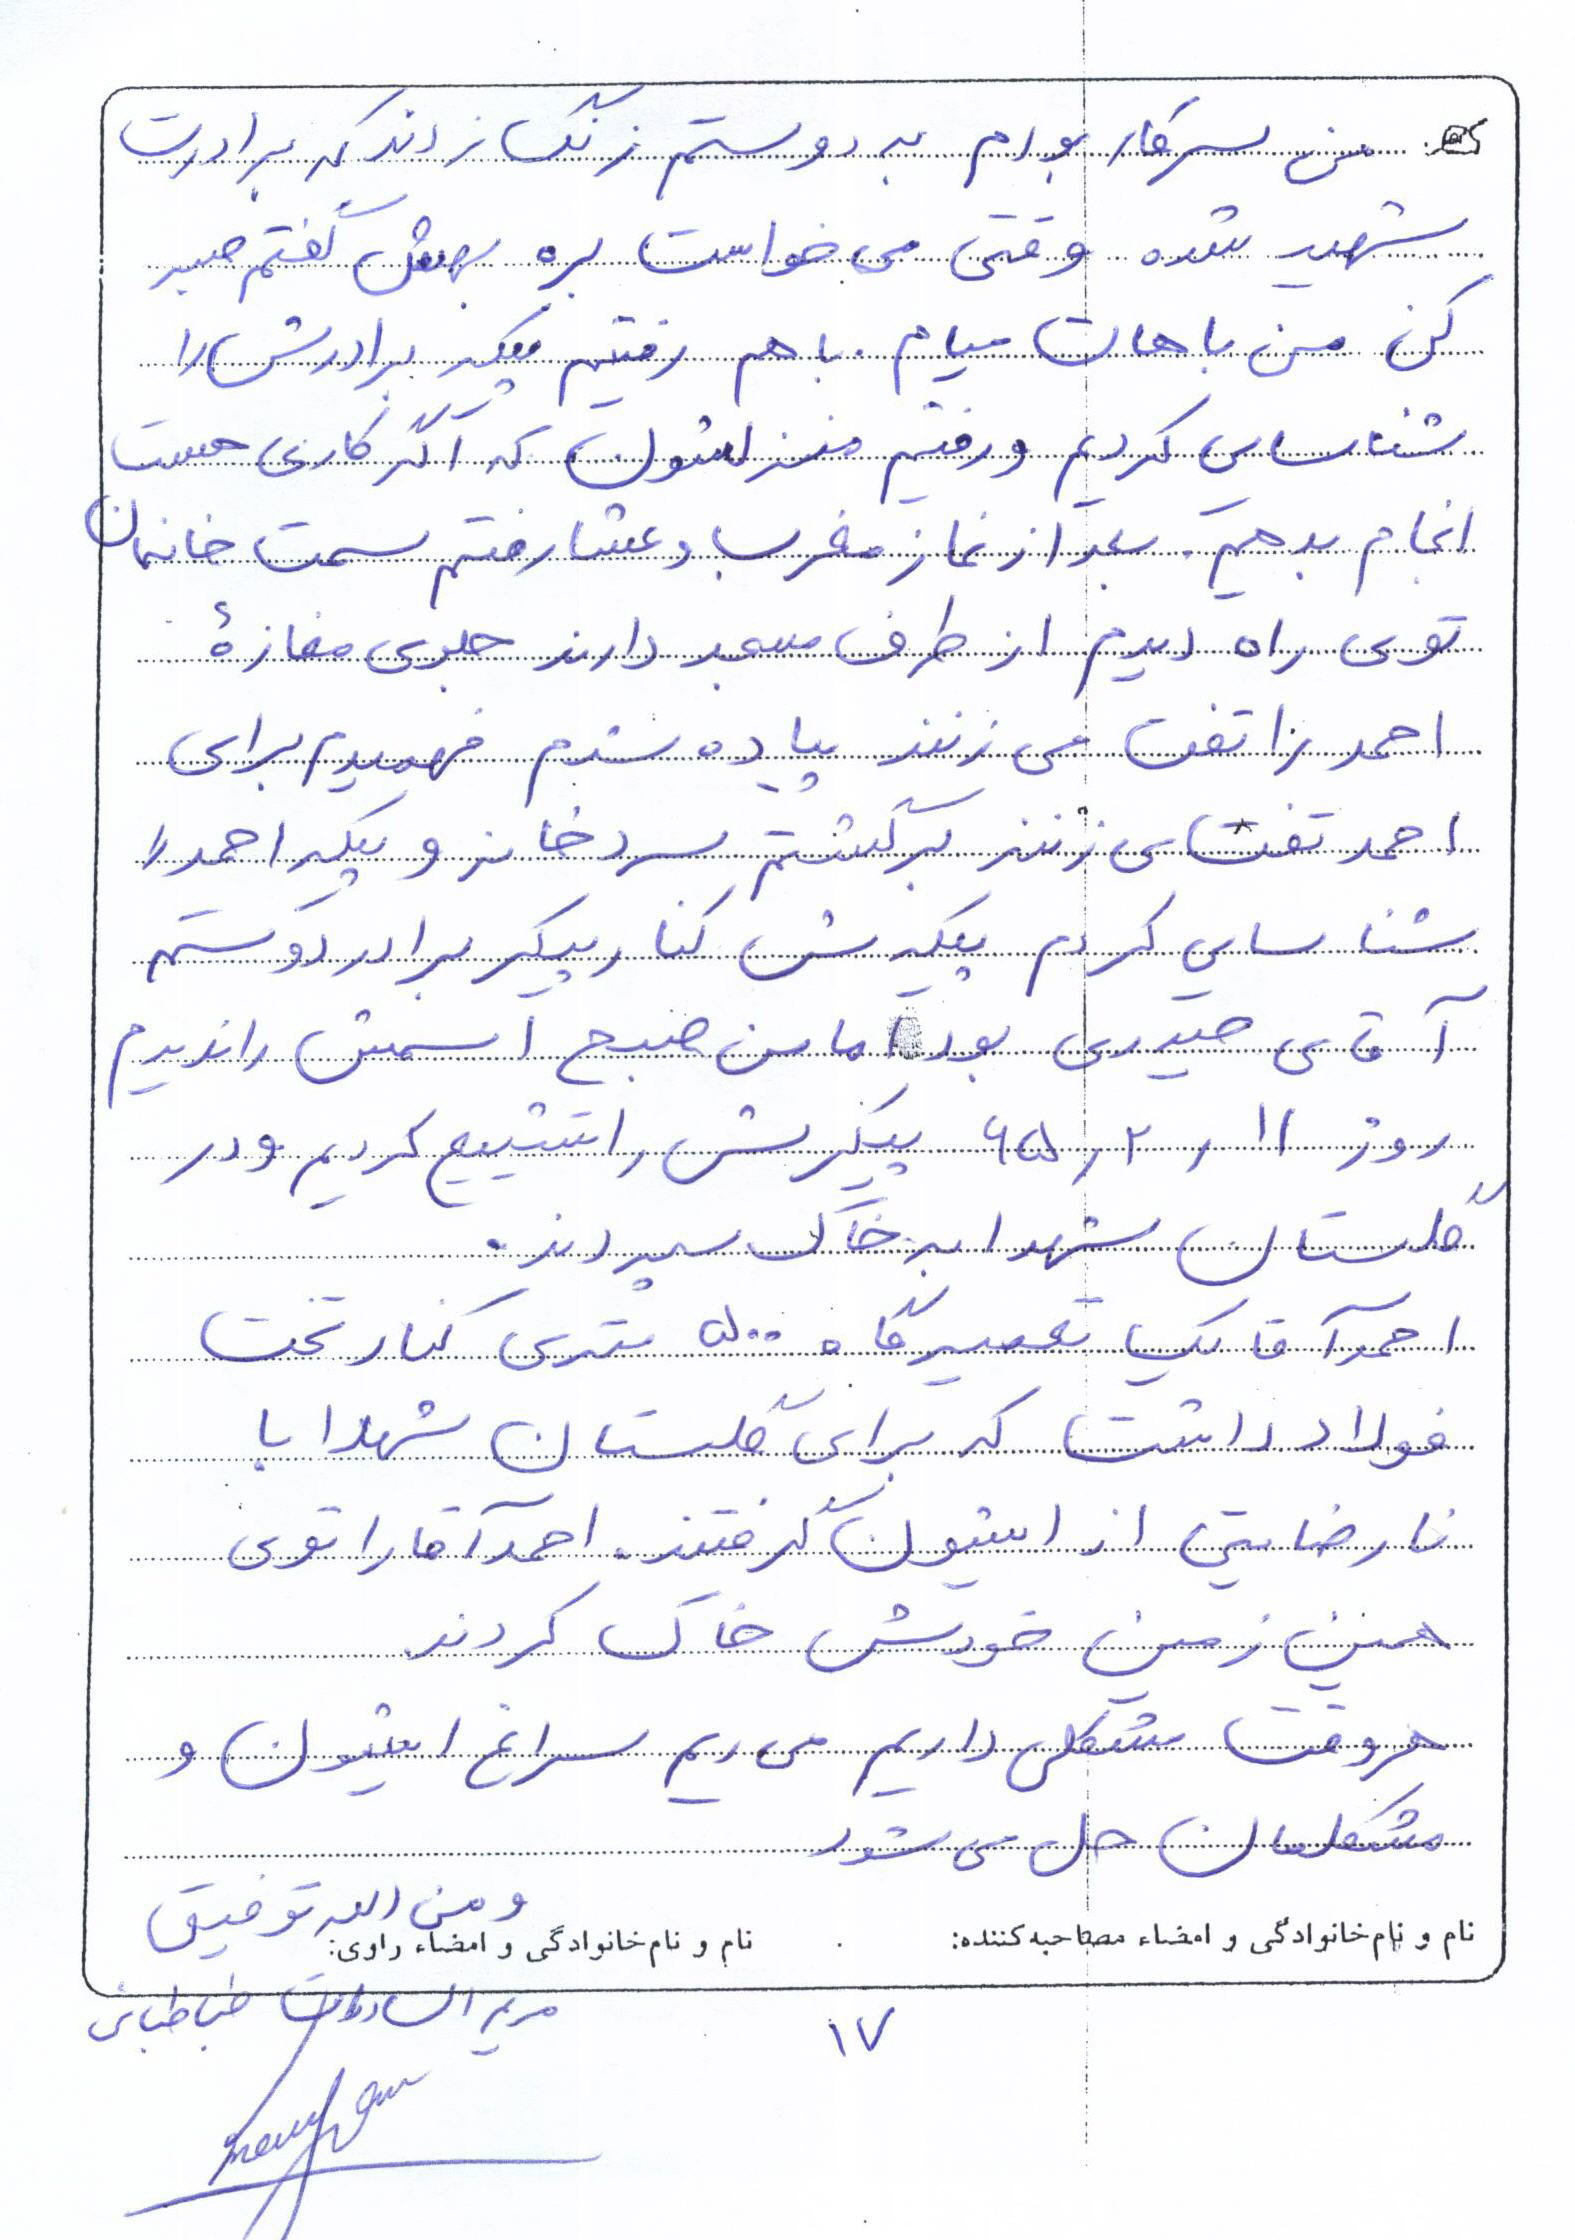 من سرکار بودم به دوستم زنگ زدند که برادرت
شهید شده وقتی می خواست بره بهش گفتم صبر
کن من باهات میام. باهم رفتیم پیکر برادرش را
شناسایی کردیم و رفتیم منزلشون که اگر کاری هست
انجام بدهیم. بعد از نماز مغرب و عشا رفتم سمت خانمان
توی راه دیدم از طرف مسجد دارند جلوی مغازهٔ
احمد را تفت می زنند پیاده شدم فهمیدم برای
احمد تفت می زنند برگشتم سردخانه و پیکر احمد را
شناسایی کردم پیکرش کنار پیکر برادر دوستم
آقای حیدری بود اما من صبح اسمش را ندیدم
روز ۱۱ ر ۲ ر ۶۵ پیکرش را تشییع کردیم و در
گلستان شهدا به خاک سپردند.
احمد آقا یک تعمیرگاه ۵۰۰ متری کنار تخت
فولاد داشت که برای گلستان شهدا با
نارضایتی از ایشون گرفتند. احمد آقا را توی
همین زمین خودش خاک کردند
هروقت مشکلی داریم می ریم سراغ ایشون و
مشکلمان حل می شود
و من الله توفیق
نام و نام خانوادگی و امضاء مصاحبه کننده:
نام و نام خانوادگی و امضاء راوی:
مریم السادات طباطبائی
۱۷